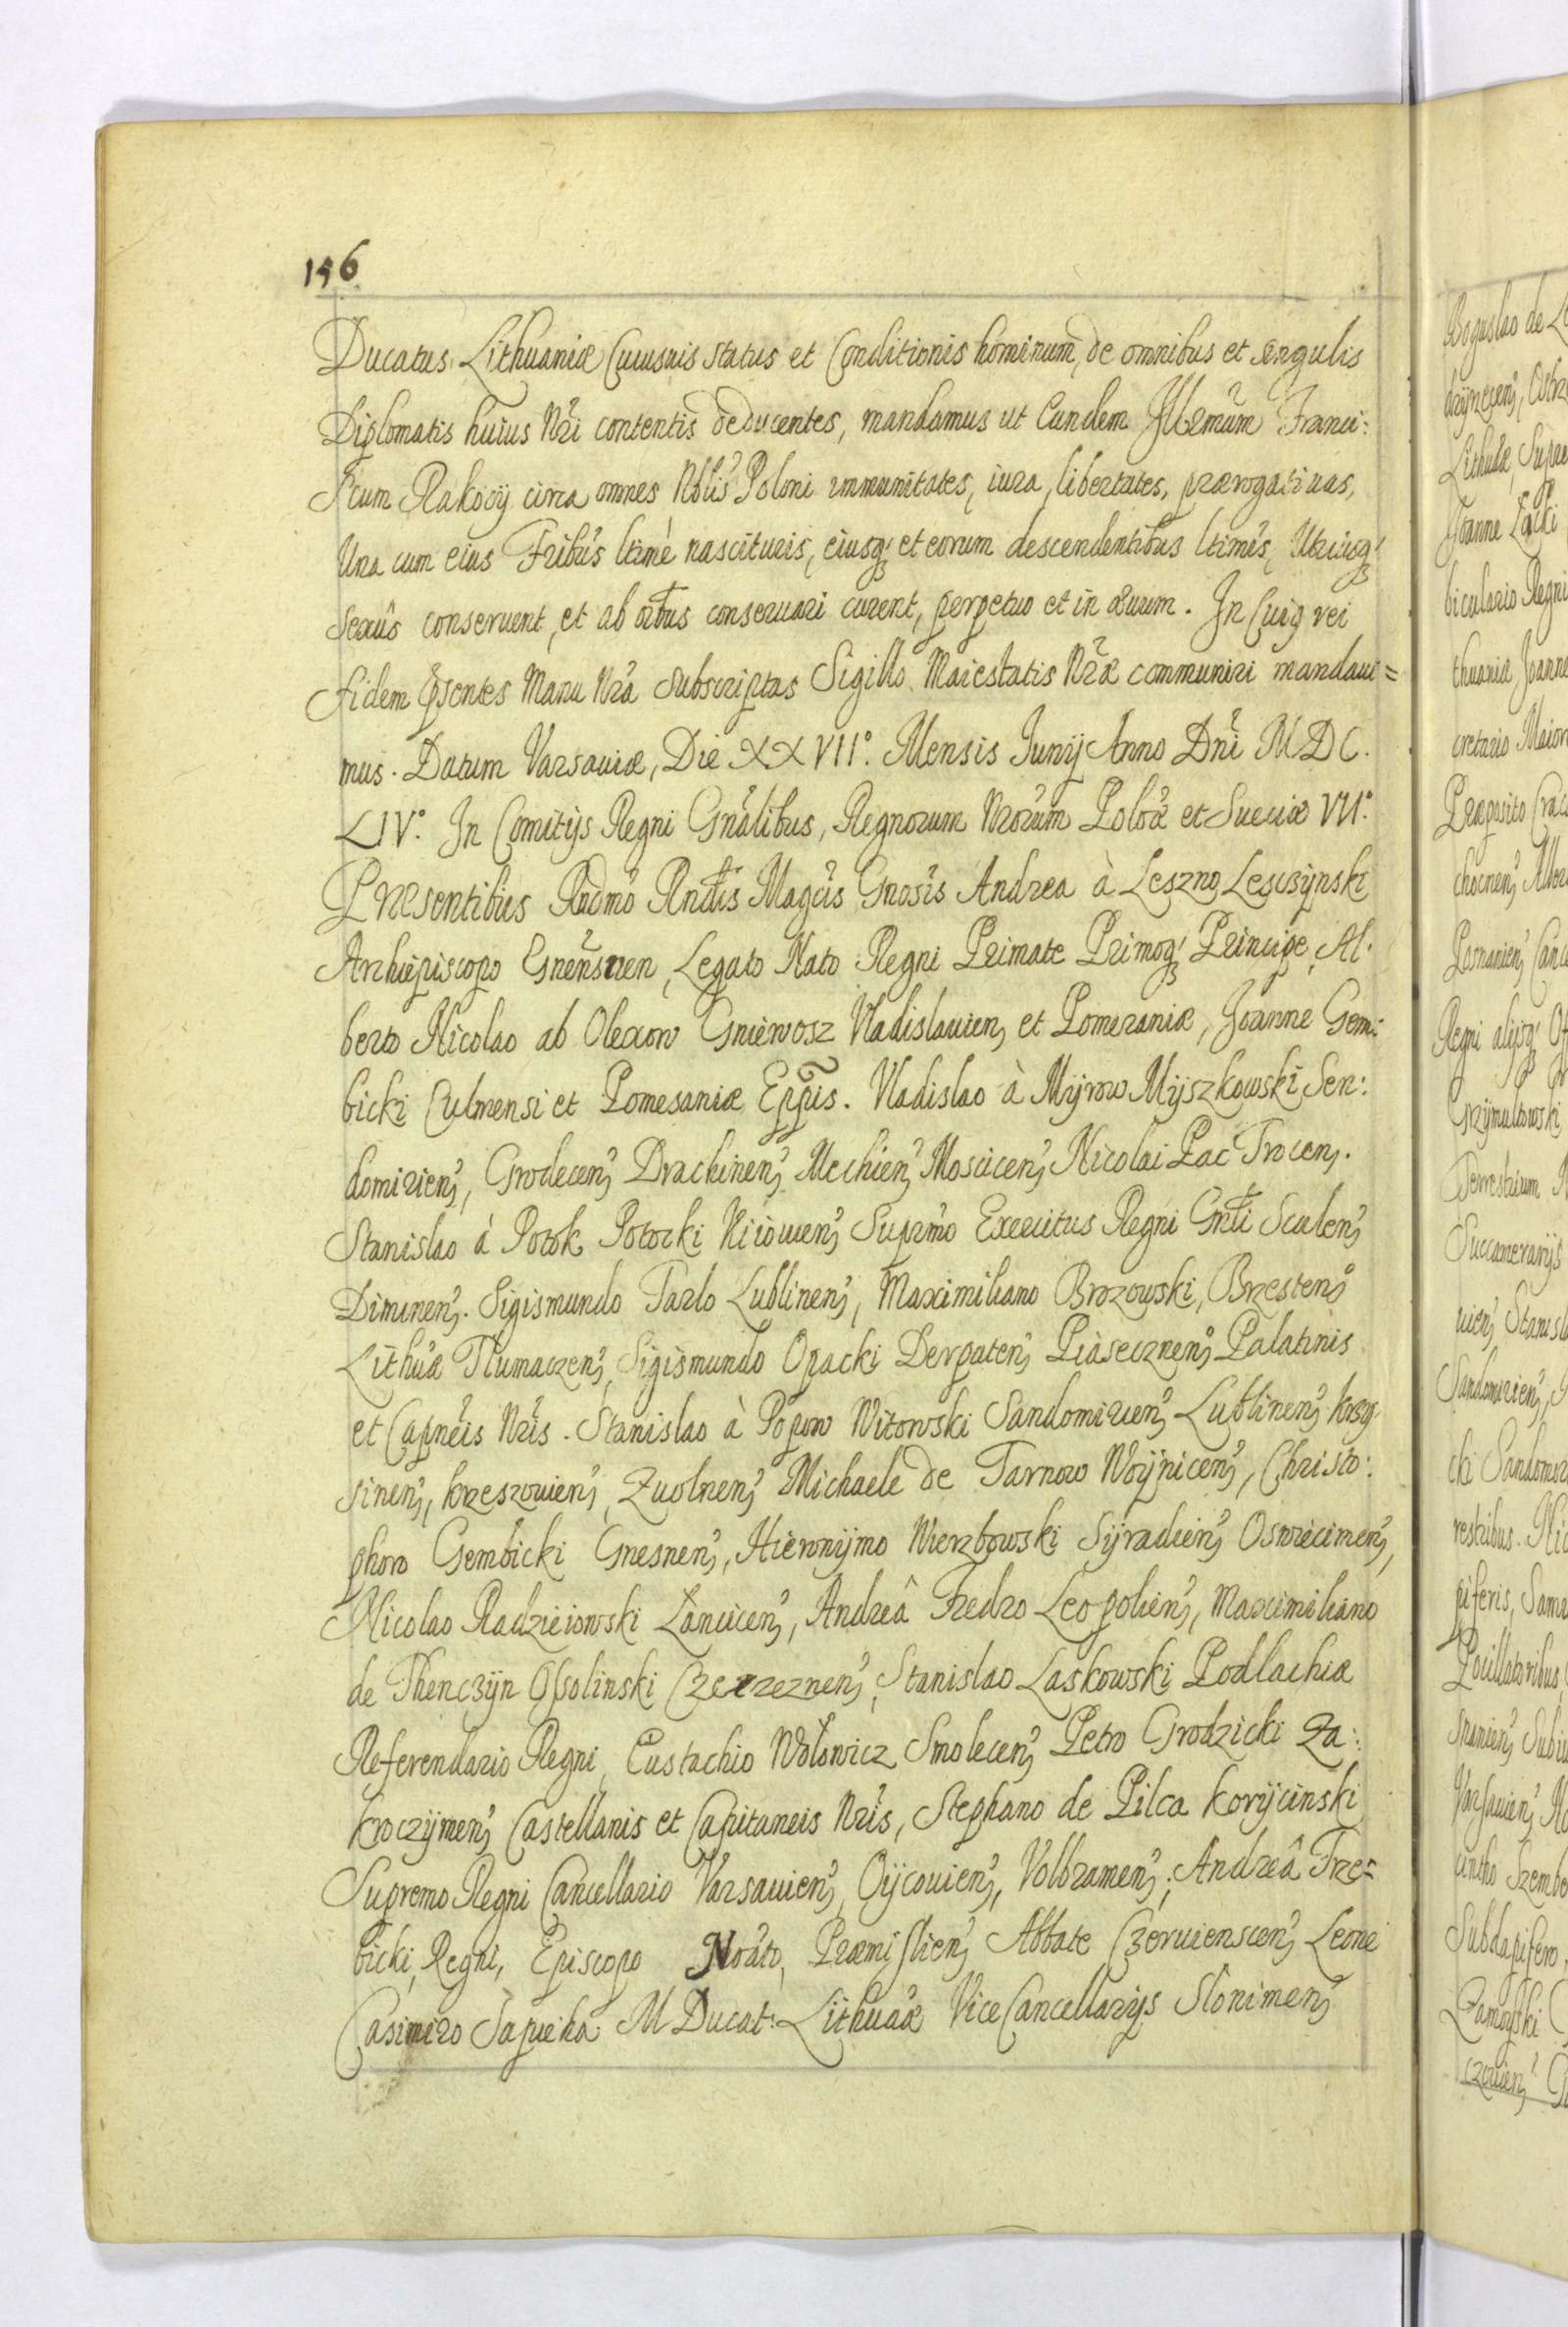 156
Ducatus Lithuaniæ Cuiusuis status et Conditionis hominum, de omnibus et singulis
Diplomatis huius Nri contentis deducentes, mandamus ut Eundem Illrmum Franci:
scum Rakocÿ circa omnes Nblis Poloni immunitates, iura, libertates, prærogatiuas,
Una cum eius Fribus ltimè nascituris, eiusq, et eorum descendentibus ltimis, Utriusq,
sexûs conseruent, et ab oibus conseruari curent, perpetuo et in æuum. In Cuiq rei
fidem pñtes Manu Nra subscriptas Sigillo Maiestatis Nræ communiri mandaui=
mus. Datum Varsauiæ, Die XXVII°. Mensis Junÿ Anno Dni MDC.
LIV°. In Comitÿs Regni Gnalibus, Regnorum Nrorum Poloæ et Sueciæ VII°.
Præsentibus Rndmo Rndis Magcis Gnosis Andrea à Leszno Lesczÿnski
Archiepiscopo Gnensnen, Legato Nato Regni Primate Primoq, Principe, Al:
berto Nicolao ab Olexow Gniewosz Vladislauien, et Pomeraniæ, Joanne Gem:
bicki Culmensi et Pomesaniæ Eppis. Vladislao à Mÿrow Mÿszkowski Sen:
domirien, Grodecen, Drachinen, Mechien, Moscicen, Nicolai Pac Trocen.
Stanislao à Potok Potocki Kiiouien, Supmo Exercitus Regni Gnli Sculen,
Dimenen. Sigismundo Tarlo Lublinen, Maximiliano Brozowski, Brzesten,
Lithuæ Tlumaczen, Sigismundo Opacki Derpaten, Piàsecznen, Palatinis
et Capneis Nris. Stanislao à Popow Witowski Sandomirien, Lublinen, krsy:
sinen, krzeszouien, Zuolnen, Michaele de Tarnow Woÿnicen, Christo:
phoro Gembicki Gnesnen, Hieronÿmo Wierzbowski Sÿradien, Oswiecimen,
Nicolao Radzieiowski Lancicen, Andreâ Fredro Leopolien, Maximiliano
de Thenczÿn Ossolinski Czerzeznen, Stanislao Laskowski Podlachiæ
Referendario Regni, Eustachio Wolowicz Smolecen, Petro Grodzicki Za:
kroczÿmen, Castellanis et Capitaneis Nris, Stephano de Pilca Korÿcinski
Supremo Regni Cancellario Varsauien, Oÿcouien, Volbramen, Andreâ Trze=
bicki, Regni, Episcopo Noato, Præmislien, Abbate Czeruienscen, Leone
Casimiro Sapieha M Ducat: Lithuaæ ViceCancellarÿs Slonimen,